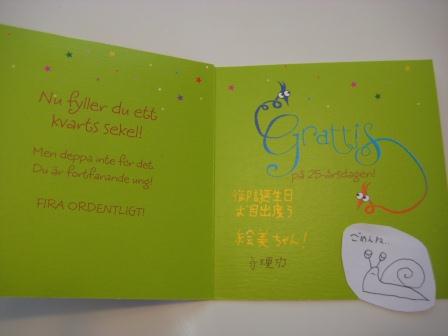 Nu fyller du ett
kvarts sekel!
Men deppa inte för det.
Du är fortfarande ung!
FIRA ORDENTLIGT!
Grattis
på 25-årsdagen!
御誕生日
お目出度う
絵美ちゃん!
ごめんね...